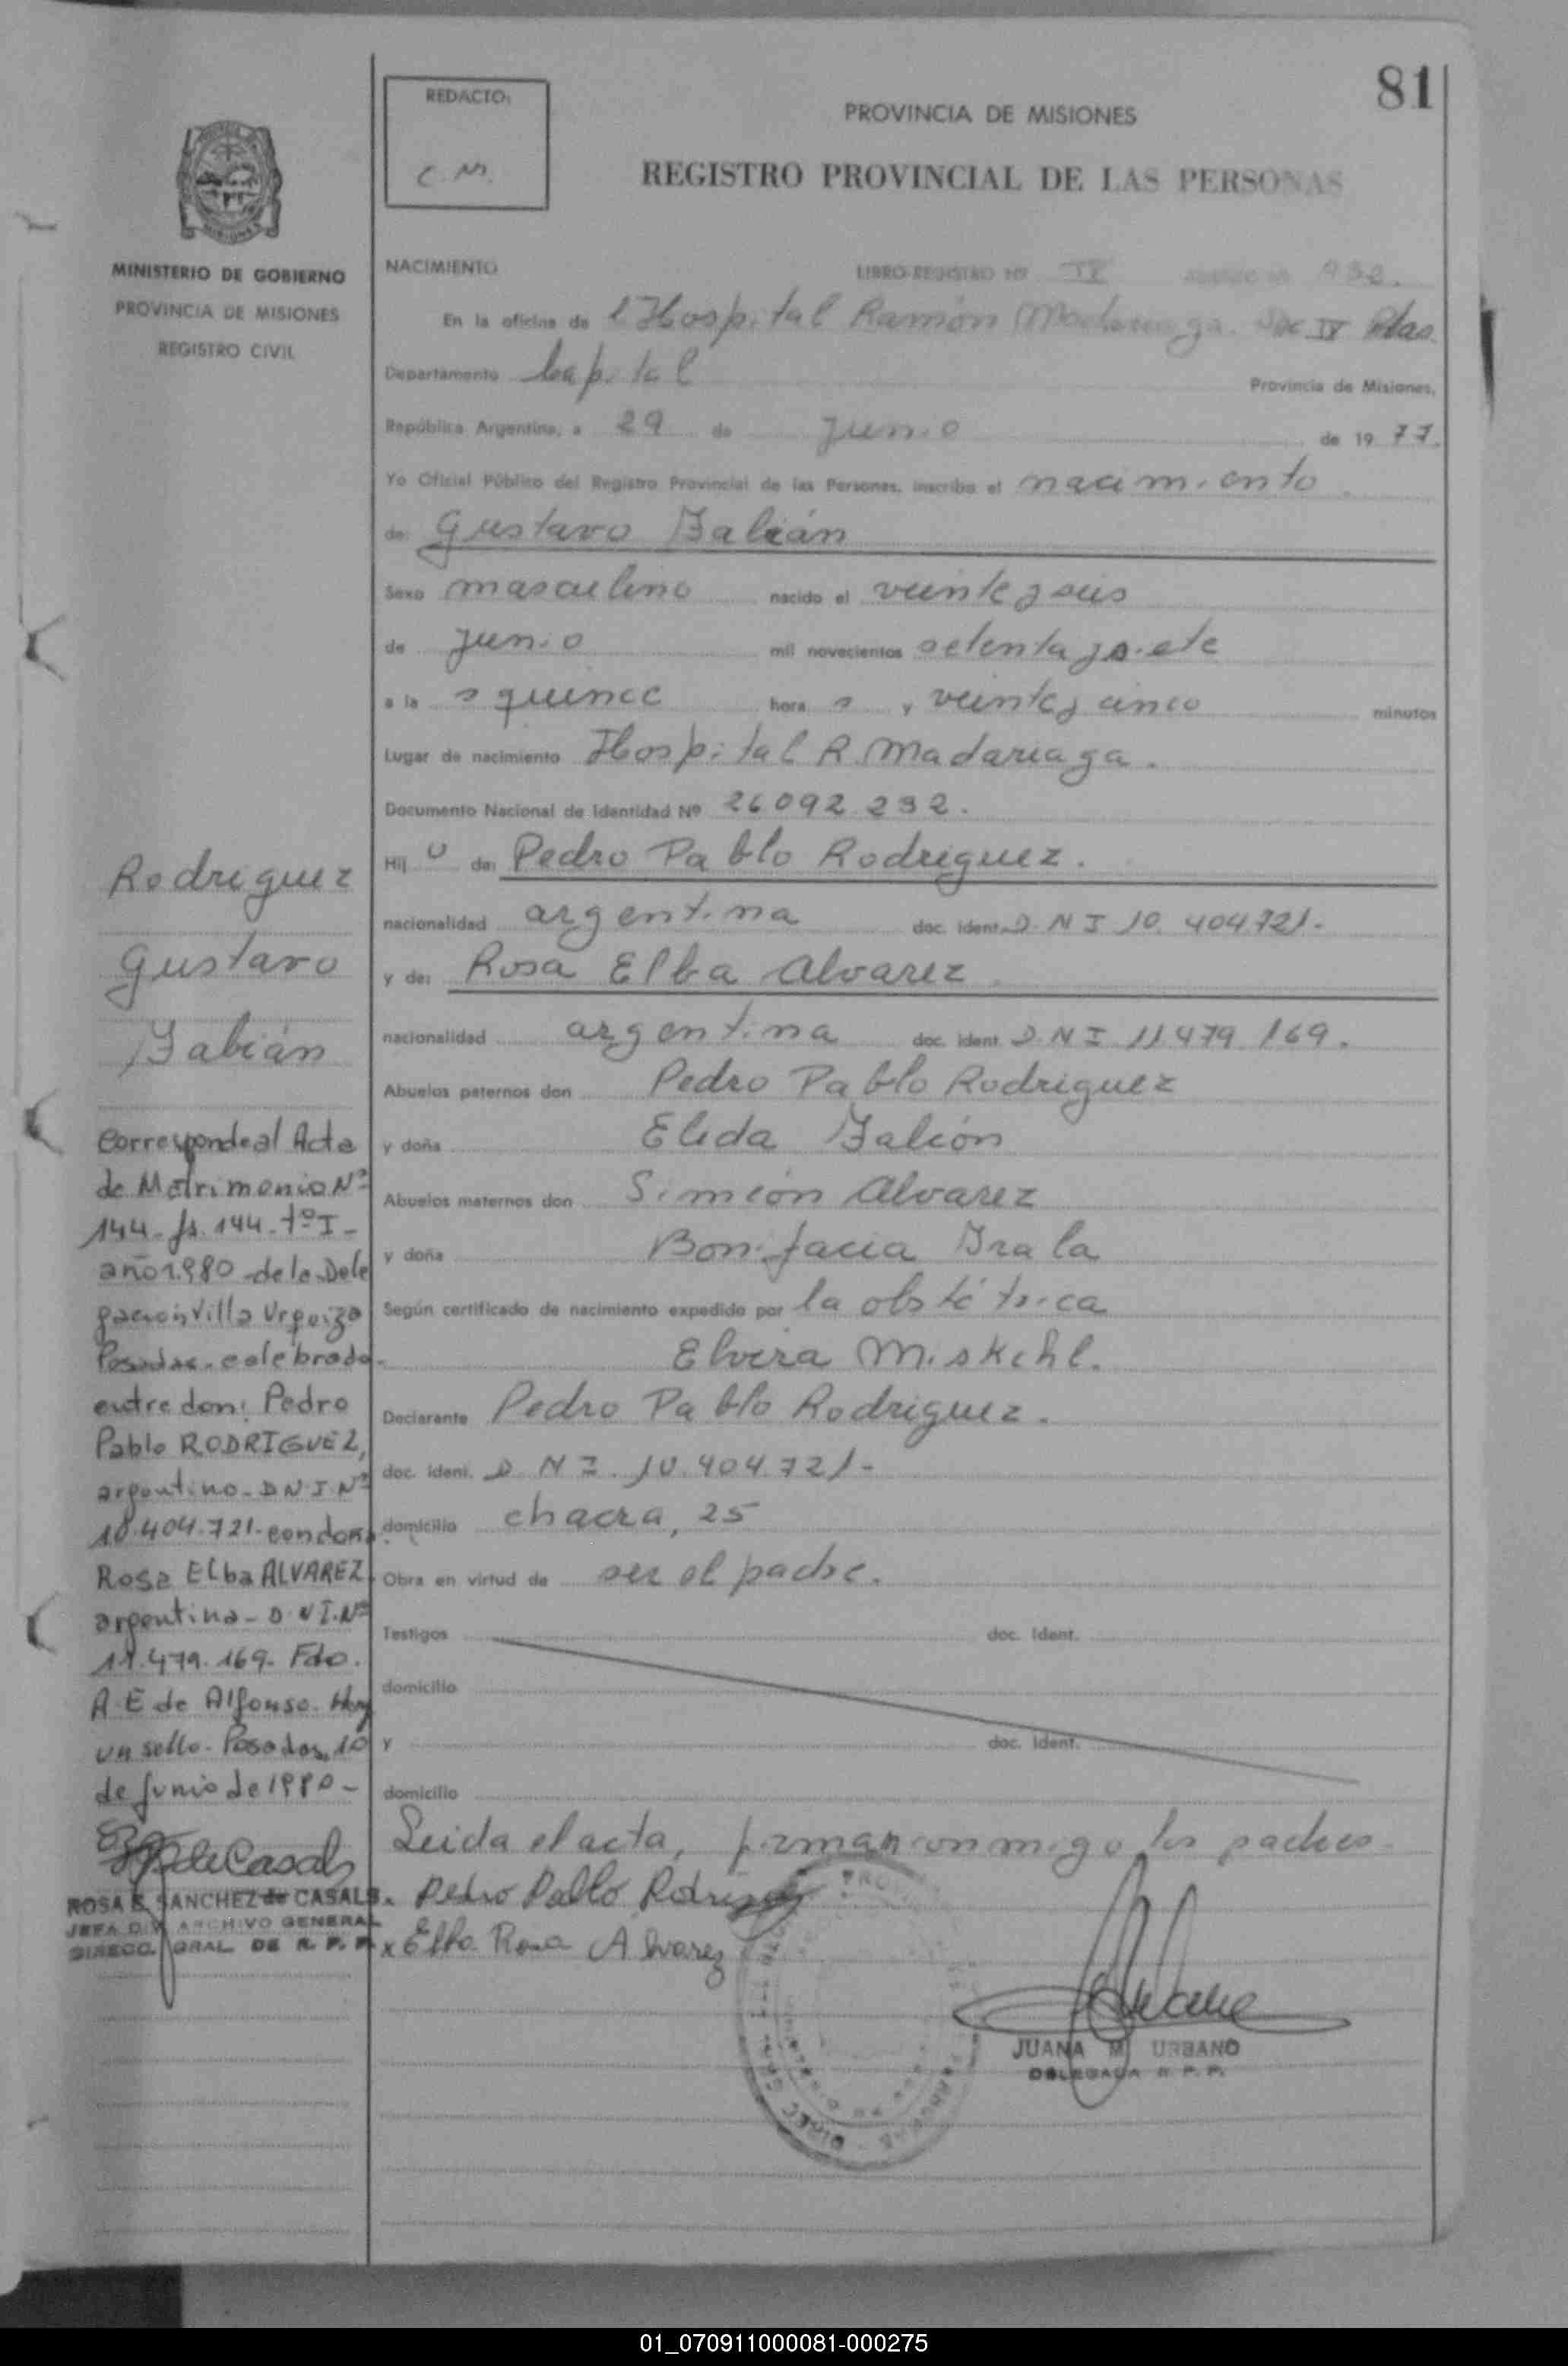 81
REDACTO:
C. M.
PROVINCIA DE MISIONES
REGISTRO PROVINCIAL DE LAS PERSONAS
MINISTERIO DE GOBIERNO
PROVINCIA DE MISIONES
REGISTRO CIVIL
NACIMIENTO LIBRO-REGISTRO Nº IV
En la oficina de l Hospital Ramón Madariaga. Sec IV Pdas.
Departamento Capital Provincia de Misiones,
República Argentina, a 29 de Junio de 19 77.
Yo Oficial Público del Registro Provincial de las Personas, inscribo el nacimiento
de: Gustavo Fabián
Sexo masculino nacido el veinte y seis
de Junio mil novecientos setenta y siete
a la s quince hora s y veinte y cinco minutos
Lugar de nacimiento Hospital R. Madariaga.
Documento Nacional de Identidad Nº 26.092.232.
Hij o de: Pedro Pablo Rodriguez.
nacionalidad argentina doc. ident. D.N.I 10.404.721.-
y de: Rosa Elba Alvarez
nacionalidad argentina doc. ident. D.N.I 11.479.169.
Abuelos paternos don Pedro Pablo Rodriguez
y doña Elida
Abuelos maternos don Simión Alvarez
y doña Bonifacia Irala
Según certificado de nacimiento expedido por la obstétrica
Elvira Miskehl.
Declarante Pedro Pablo Rodriguez.
doc. ident. D.N.I. 10.404.721-
domicilio chacra, 25
Obra en virtud de ser el padre.
Testigos doc. ident.
domicilio
y doc. ident.
domicilio
Leida el acta, firman conmigo los padres.
Pedro Pablo Rodriguez
x Elba Rosa Alvarez
JUANA M. URBANO
DELEGADA R. P. P.
Rodriguez
Gustavo
Fabián
Corresponde al Acta
de Matrimonio Nº
144- fs. 144- tº I-
año 1.980- de la Dele
gación Villa Urquiza
Posadas- celebrado
entre don: Pedro
Pablo RODRIGUEZ,
argentino- D.N.I.Nº
10.404.721- con doña
Rosa Elba ALVAREZ
argentina- D.N.I.Nº
11.479.169- Fdo.
A. E de Alfonso. Hay
un sello- Posadas, 10
de junio de 1980-
de Casals
ROSA E. SANCHEZ de CASALS
JEFA DIV. ARCHIVO GENERAL
DIRECC. GRAL DE R. P. P.
01_070911000081-000275